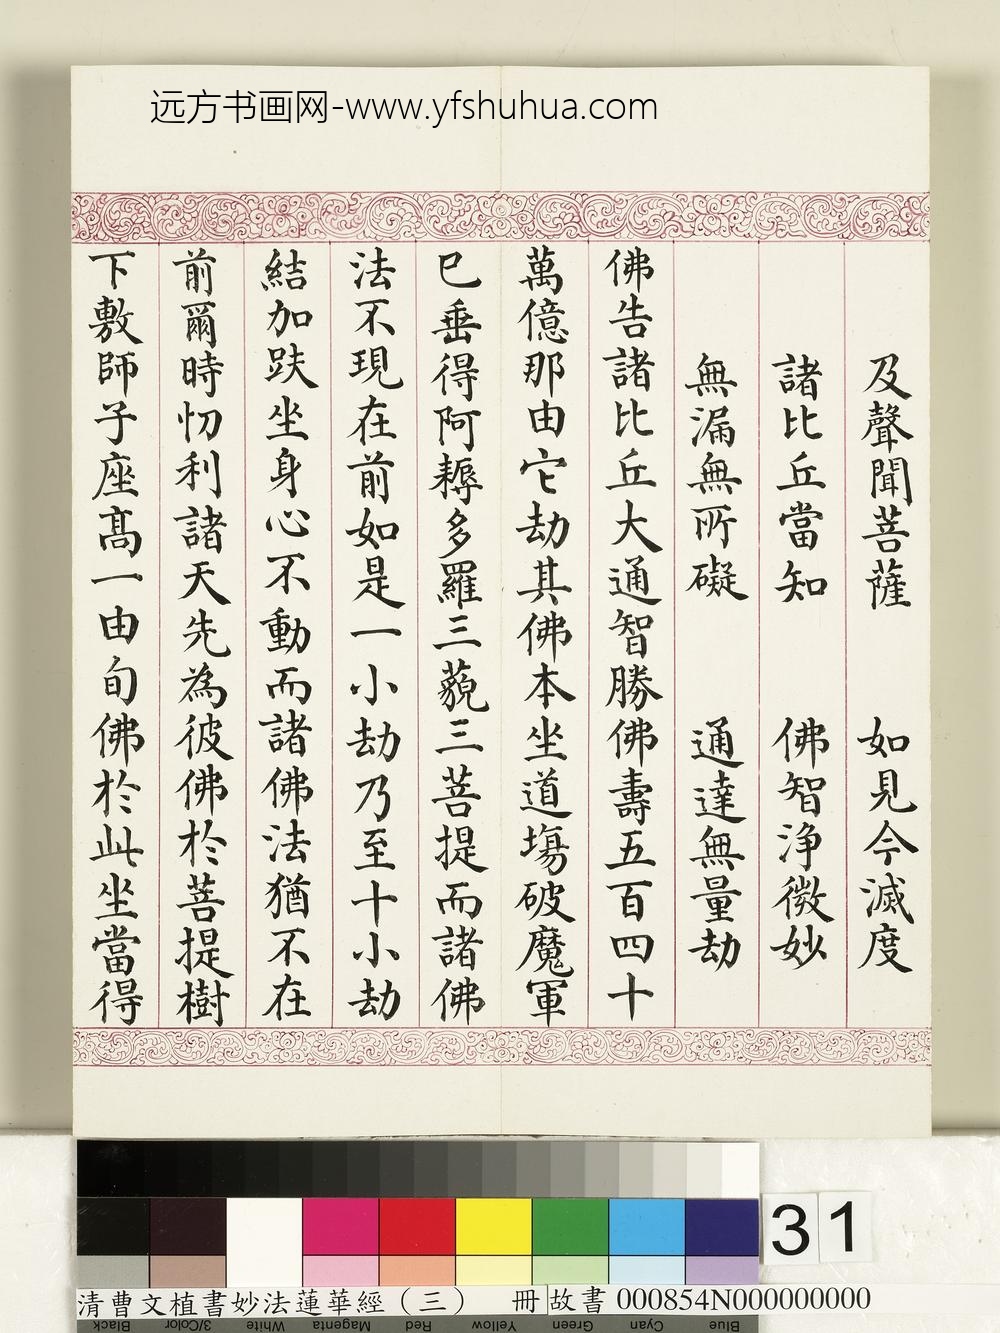 远方书画网-www.yfshuhua.com
及聲聞菩薩　如見今滅度
諸比丘當知　佛智淨微妙
無漏無所礙　通達無量劫
佛告諸比丘大通智勝佛壽五百四十
萬億那由它劫其佛本坐道場破魔軍
已垂得阿耨多羅三藐三菩提而諸佛
法不現在前如是一小劫乃至十小劫
結加趺坐身心不動而諸佛法猶不在
前爾時忉利諸天先為彼佛於菩提樹
下敷師子座高一由旬佛於此坐當得
31
清曹文植書妙法蓮華經（三）　冊 故書 000854N000000000
Black 3/Color White Magenta Red Yellow Green Cyan Blue